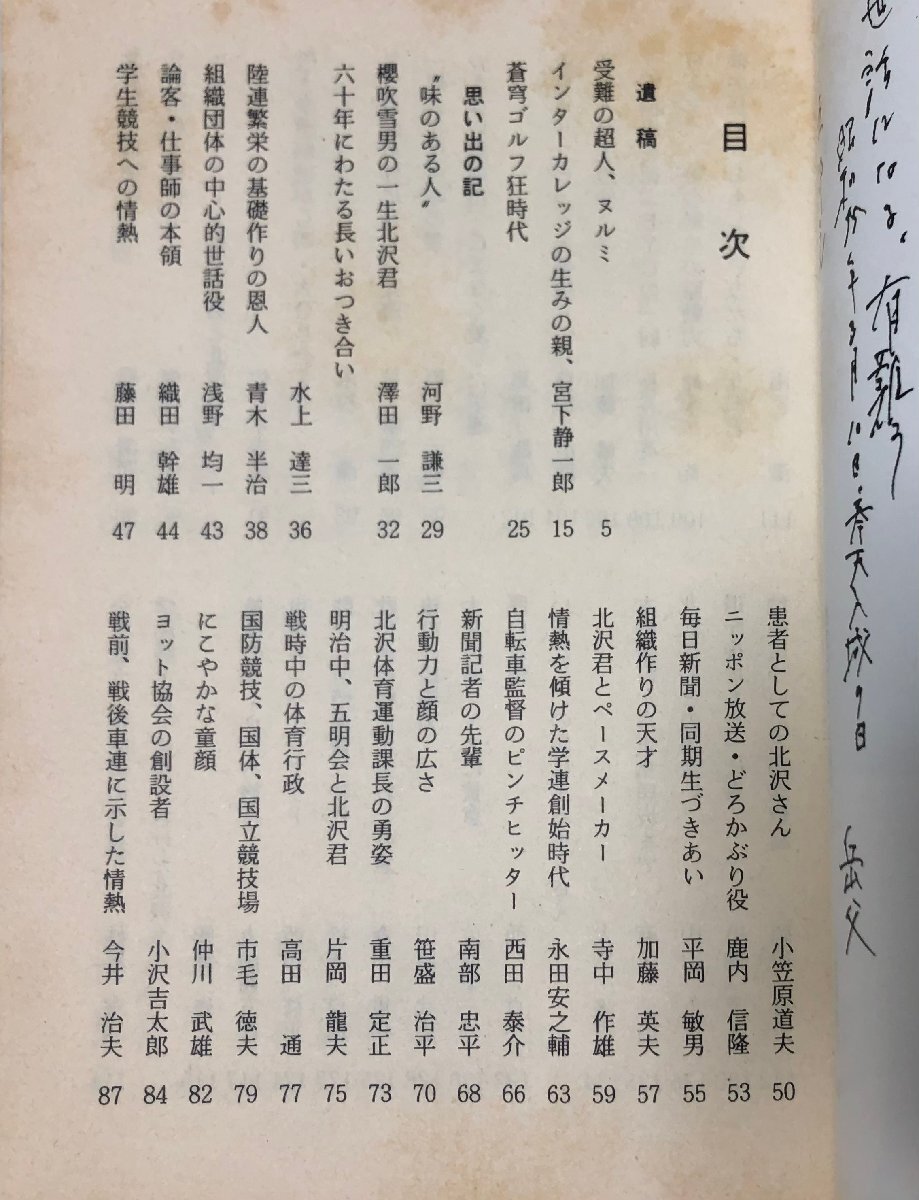 目次
遺稿
受難の超人、ヌルミ 5
インターカレッジの生みの親、宮下静一郎 15
蒼穹ゴルフ狂時代 25
思い出の記
〝味のある人〟 河野 謙三 29
櫻吹雪男の一生北沢君 澤田 一郎 32
六十年にわたる長いおつき合い 水上 達三 36
陸連繁栄の基礎作りの恩人 青木 半治 38
組織団体の中心的世話役 浅野 均一 43
論客・仕事師の本領 織田 幹雄 44
学生競技への情熱 藤田 明 47
患者としての北沢さん 小笠原道夫 50
ニッポン放送・どろかぶり役 鹿内 信隆 53
毎日新聞・同期生づきあい 平岡 敏男 55
組織作りの天才 加藤 英夫 57
北沢君とペースメーカー 寺中 作雄 59
情熱を傾けた学連創始時代 永田安之輔 63
自転車監督のピンチヒッター 西田 泰介 66
新聞記者の先輩 南部 忠平 68
行動力と顔の広さ 笹盛 治平 70
北沢体育運動課長の勇姿 重田 定正 73
明治中、五明会と北沢君 片岡 龍夫 75
戦時中の体育行政 高田 通 77
国防競技、国体、国立競技場 市毛 徳夫 79
にこやかな童顔 仲川 武雄 82
ヨット協会の創設者 小沢吉太郎 84
戦前、戦後車連に示した情熱 今井 治夫 87
岳父